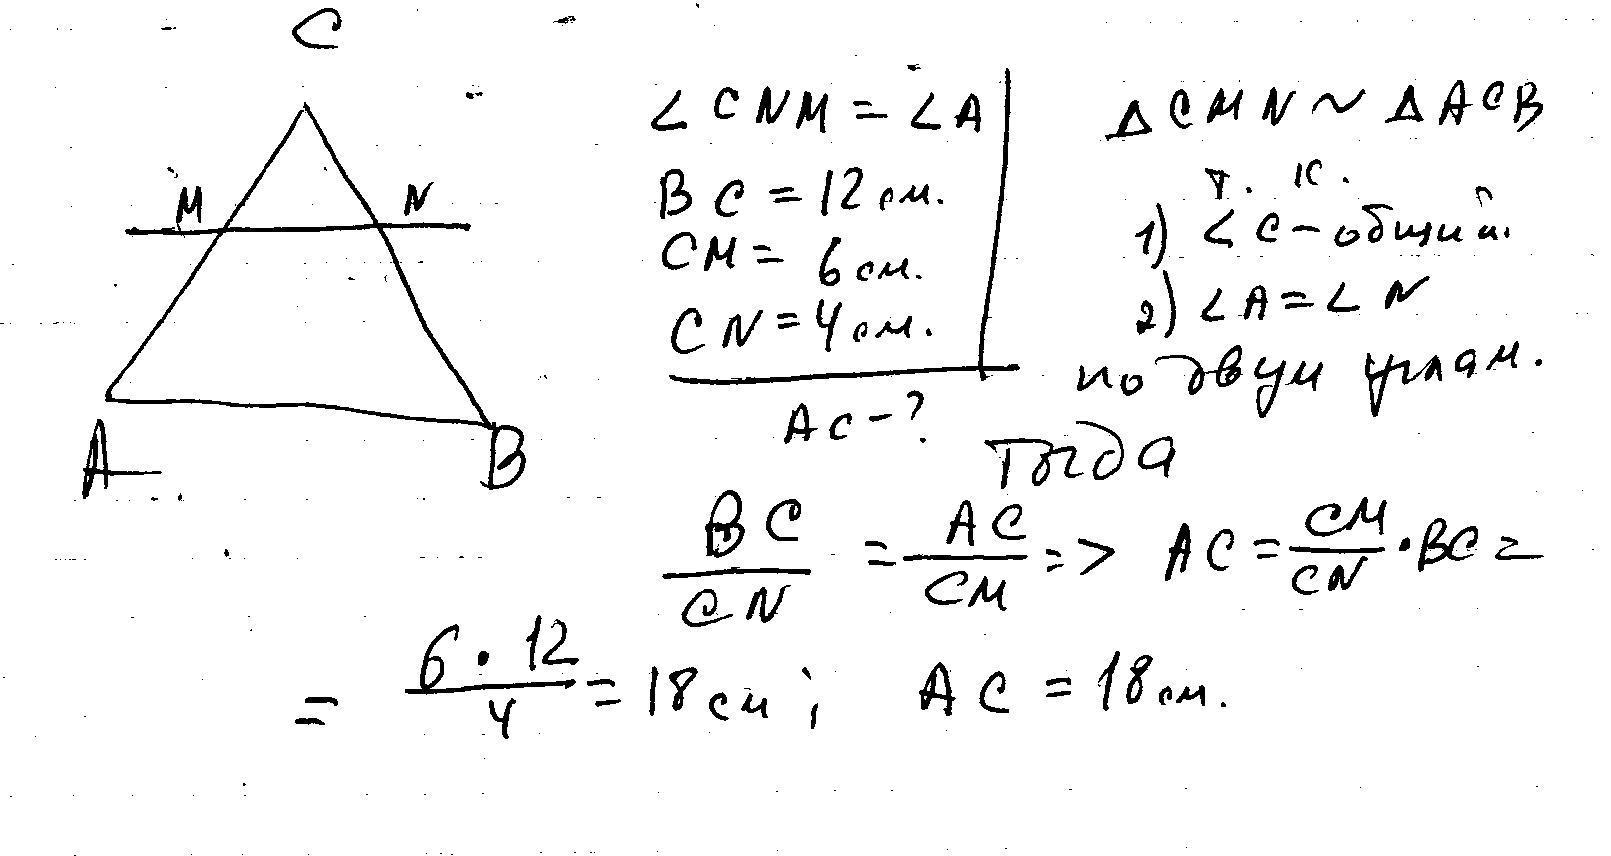 C
M N
A B
∠CNM = ∠A
BC = 12 см.
CM = 6 см.
CN = 4 см.
AC - ?
ΔCMN ~ ΔACB
т. к.
1) ∠C - общий.
2) ∠A = ∠N
по двум углам.
Тогда
BC/CN = AC/CM => AC = CM/CN · BC =
= 6 · 12/4 = 18 см; AC = 18 см.